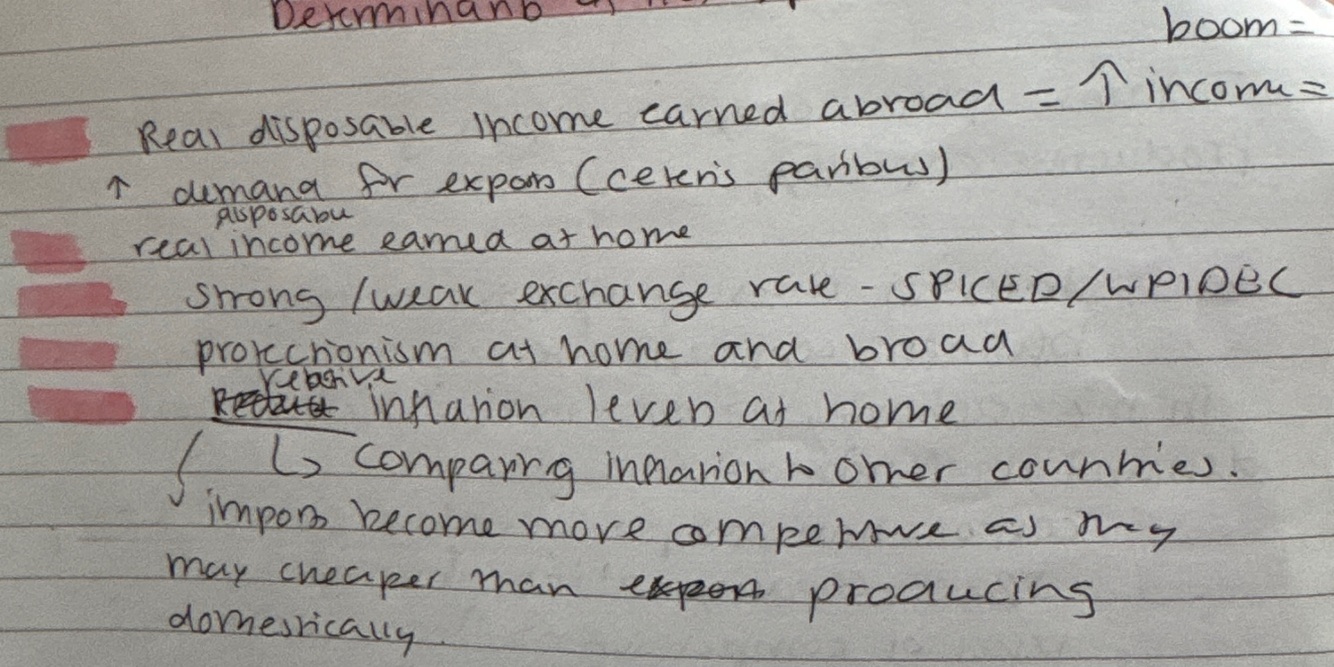 Determinants of
boom =
Real disposable income earned abroad = ↑ income =
↑ demand for exports (ceteris paribus)
disposable
real income earned at home
strong / weak exchange rate - SPICED/WPIDEC
protectionism at home and broad
relative
inflation levels at home
↳ comparing inflation to other countries.
imports become more competitive as they
may cheaper than exports producing
domestically